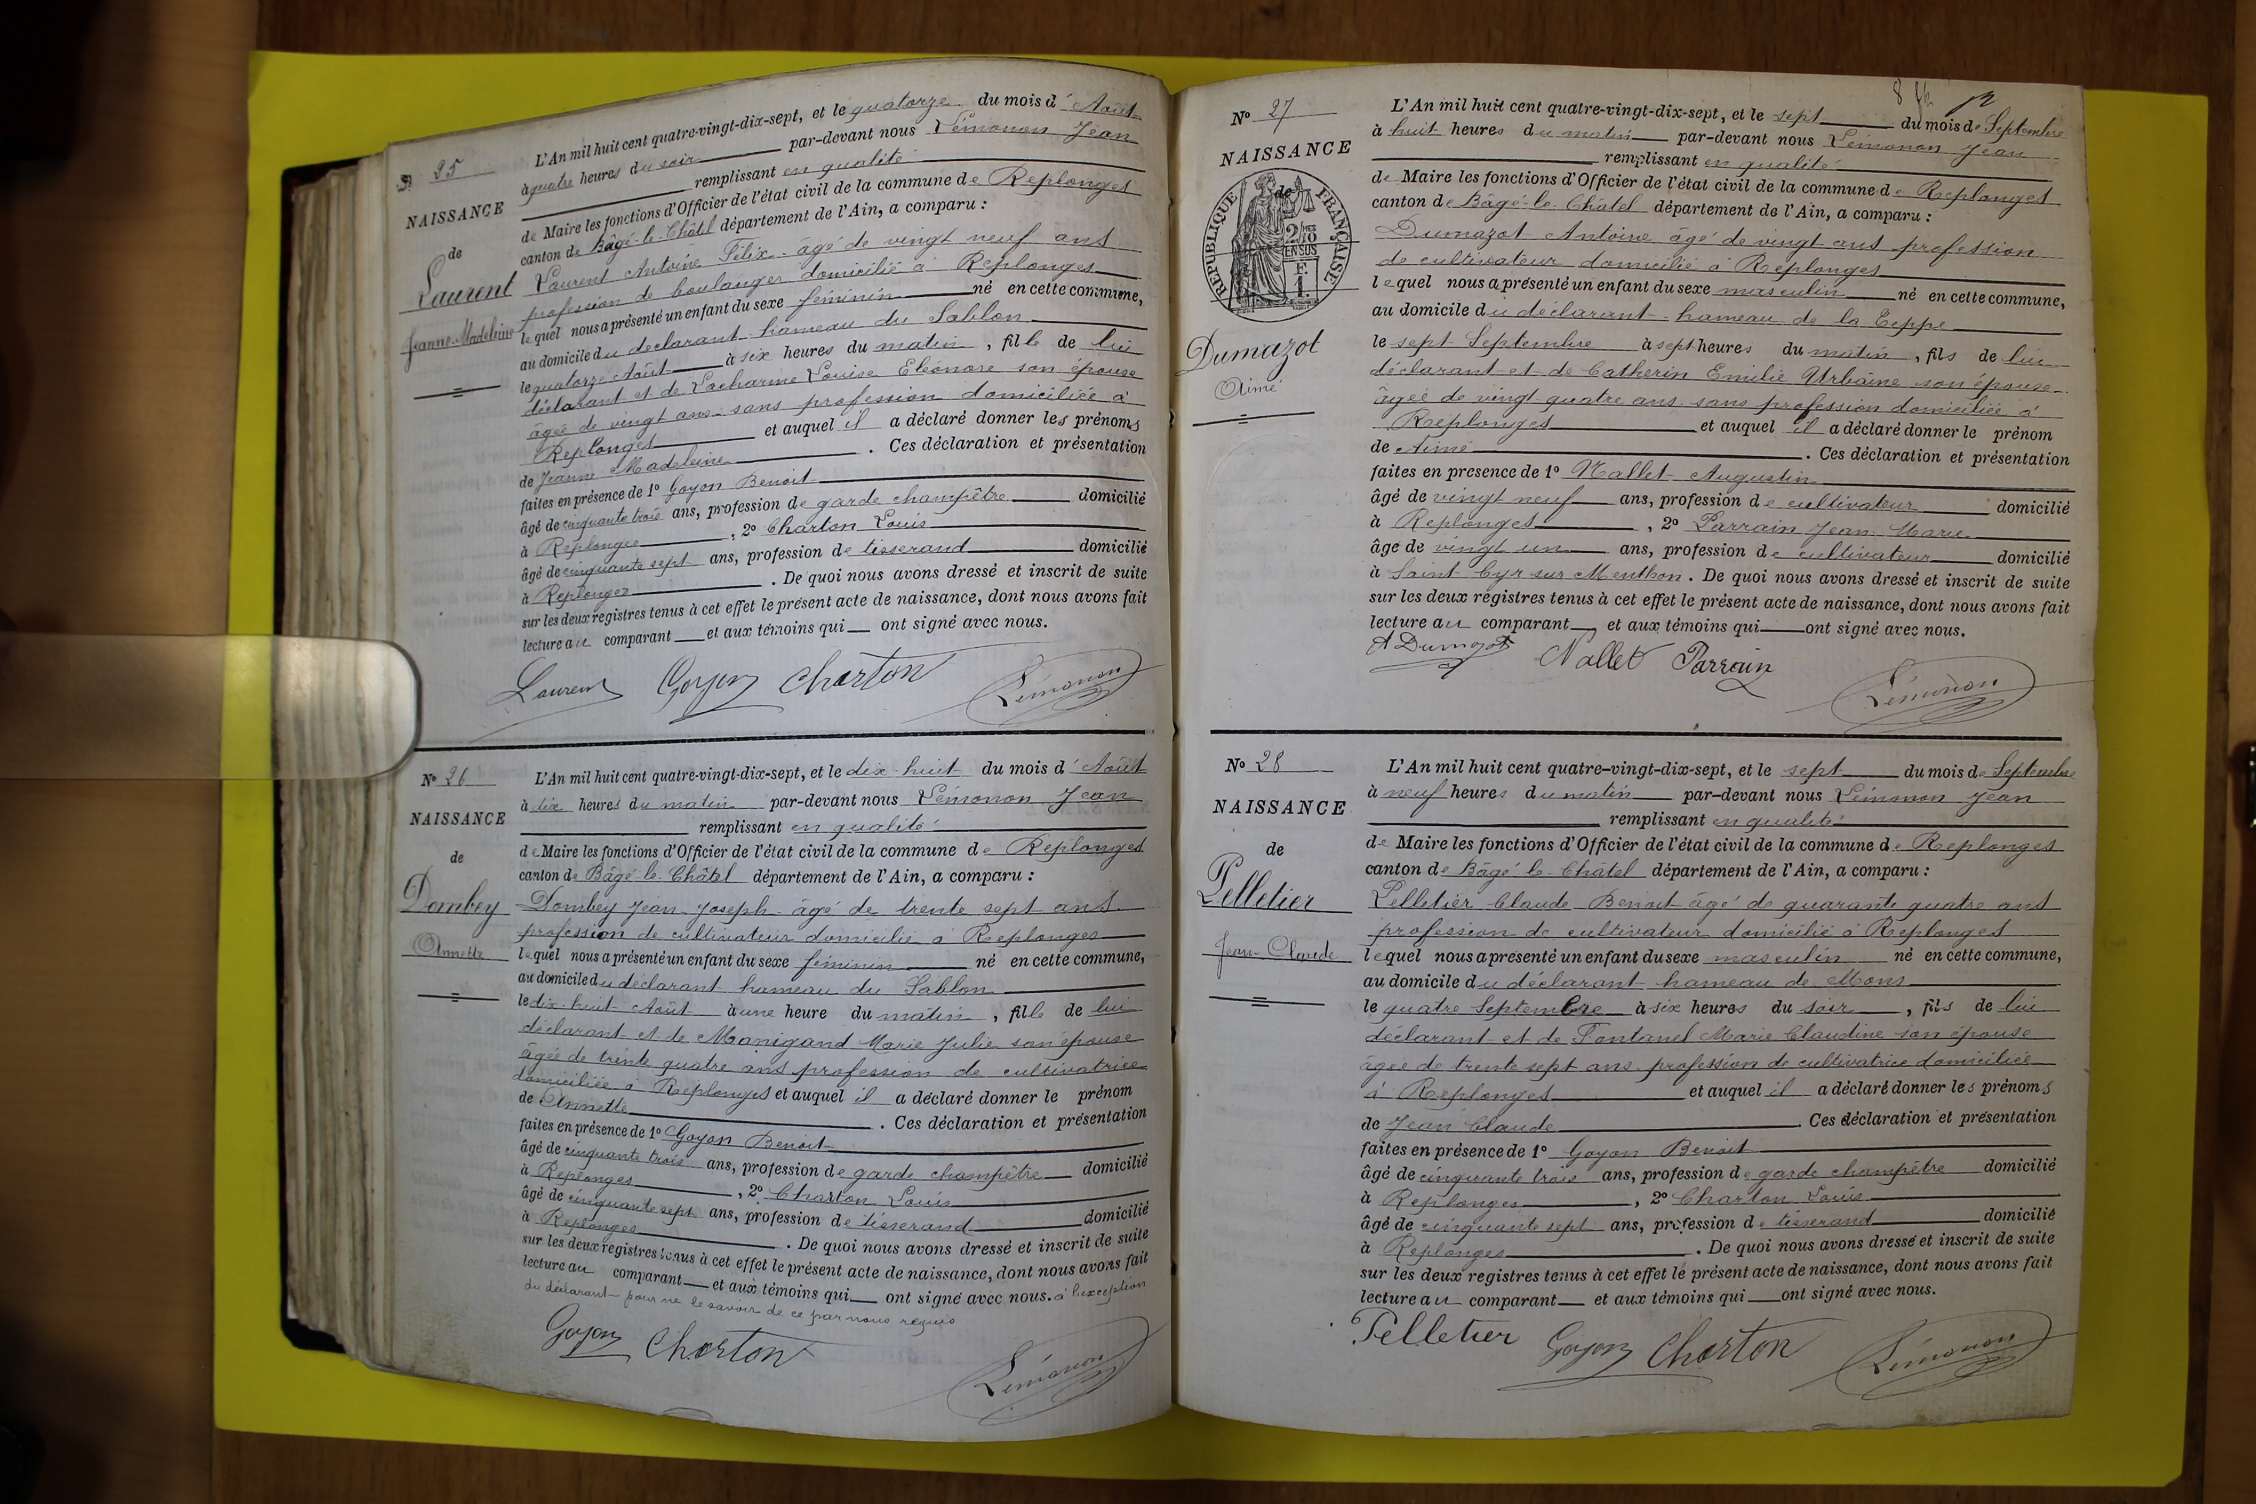 N° 25
NAISSANCE
de
Laurent
Jeanne Madeleine
L'An mil huit cent quatre-vingt-dix-sept, et le quatorze du mois d'Août
à quatre heures du soir par-devant nous Lémonon Jean
remplissant en qualité
de Maire les fonctions d'Officier de l'état civil de la commune de Replonges
canton de Bâgé-le-Châtel département de l'Ain, a comparu :
Laurent Antoine Félix âgé de vingt neuf ans
profession de boulanger domicilié à Replonges
lequel nous a présenté un enfant du sexe féminin né en cette commune,
au domicile du déclarant hameau du Sablon
le quatorze Août à six heures du matin, fille de lui
déclarant et de Lacharme Louise Eléonore son épouse
âgée de vingt ans sans profession domiciliée à
Replonges et auquel il a déclaré donner les prénoms
de Jeanne Madeleine. Ces déclaration et présentation
faites en présence de 1° Goyon Benoit
âgé de cinquante trois ans, profession de garde champêtre domicilié
à Replonges, 2° Charton Louis
âgé de cinquante sept ans, profession de tisserand domicilié
à Replonges. De quoi nous avons dressé et inscrit de suite
sur les deux registres tenus à cet effet le présent acte de naissance, dont nous avons fait
lecture au comparant et aux témoins qui ont signé avec nous.
Laurent Goyon Charton Lémonon
N° 26
NAISSANCE
de
Dombey
Annette
L'An mil huit cent quatre-vingt-dix-sept, et le dix huit du mois d'Août
à dix heures du matin par-devant nous Lémonon Jean
remplissant en qualité
de Maire les fonctions d'Officier de l'état civil de la commune de Replonges
canton de Bâgé-le-Châtel département de l'Ain, a comparu :
Dombey Jean Joseph âgé de trente sept ans
profession de cultivateur domicilié à Replonges
lequel nous a présenté un enfant du sexe féminin né en cette commune,
au domicile du déclarant hameau du Sablon
le dix huit Août à une heure du matin, fille de lui
déclarant et de Manigand Marie Julie son épouse
âgée de trente quatre ans profession de cultivatrice
domiciliée à Replonges et auquel il a déclaré donner le prénom
de Annette. Ces déclaration et présentation
faites en présence de 1° Goyon Benoit
âgé de cinquante trois ans, profession de garde champêtre domicilié
à Replonges, 2° Charton Louis
âgé de cinquante sept ans, profession de tisserand domicilié
à Replonges. De quoi nous avons dressé et inscrit de suite
sur les deux registres tenus à cet effet le présent acte de naissance, dont nous avons fait
lecture au comparant et aux témoins qui ont signé avec nous. à l'exception
du déclarant pour ne le savoir de ce par nous requis
Goyon Charton Lémonon
N° 27
NAISSANCE
de
RÉPUBLIQUE FRANÇAISE
2/10
EN SUS
F.
1.
Dumazot
Aimé
L'An mil huit cent quatre-vingt-dix-sept, et le sept du mois de Septembre
à huit heures du matin par-devant nous Lémonon Jean
remplissant en qualité
de Maire les fonctions d'Officier de l'état civil de la commune de Replonges
canton de Bâgé-le-Châtel département de l'Ain, a comparu :
Dumazot Antoine âgé de vingt ans profession
de cultivateur domicilié à Replonges
lequel nous a présenté un enfant du sexe masculin né en cette commune,
au domicile du déclarant hameau de la Teppe
le sept Septembre à sept heures du matin, fils de lui
déclarant et de Catherin Emilie Urbaine son épouse
âgée de vingt quatre ans sans profession domiciliée à
Replonges et auquel il a déclaré donner le prénom
de Aimé. Ces déclaration et présentation
faites en présence de 1° Nallet Augustin
âgé de vingt neuf ans, profession de cultivateur domicilié
à Replonges, 2° Parrain Jean Marie
âgé de vingt un ans, profession de cultivateur domicilié
à Saint Cyr sur Menthon. De quoi nous avons dressé et inscrit de suite
sur les deux registres tenus à cet effet le présent acte de naissance, dont nous avons fait
lecture au comparant et aux témoins qui ont signé avec nous.
A Dumazot Nallet Parrain
Lémonon
N° 28
NAISSANCE
de
Pelletier
Jean-Claude
L'An mil huit cent quatre-vingt-dix-sept, et le sept du mois de Septembre
à neuf heures du matin par-devant nous Lémonon Jean
remplissant en qualité
de Maire les fonctions d'Officier de l'état civil de la commune de Replonges
canton de Bâgé-le-Châtel département de l'Ain, a comparu :
Pelletier Claude Benoit âgé de quarante quatre ans
profession de cultivateur domicilié à Replonges
lequel nous a présenté un enfant du sexe masculin né en cette commune,
au domicile du déclarant hameau de Mons
le quatre Septembre à six heures du soir, fils de lui
déclarant et de Fontanel Marie Claudine son épouse
âgée de trente sept ans profession de cultivatrice domiciliée
à Replonges et auquel il a déclaré donner les prénoms
de Jean Claude. Ces déclaration et présentation
faites en présence de 1° Goyon Benoit
âgé de cinquante trois ans, profession de garde champêtre domicilié
à Replonges, 2° Charton Louis
âgé de cinquante sept ans, profession de tisserand domicilié
à Replonges. De quoi nous avons dressé et inscrit de suite
sur les deux registres tenus à cet effet le présent acte de naissance, dont nous avons fait
lecture au comparant et aux témoins qui ont signé avec nous.
Pelletier Goyon Charton Lémonon